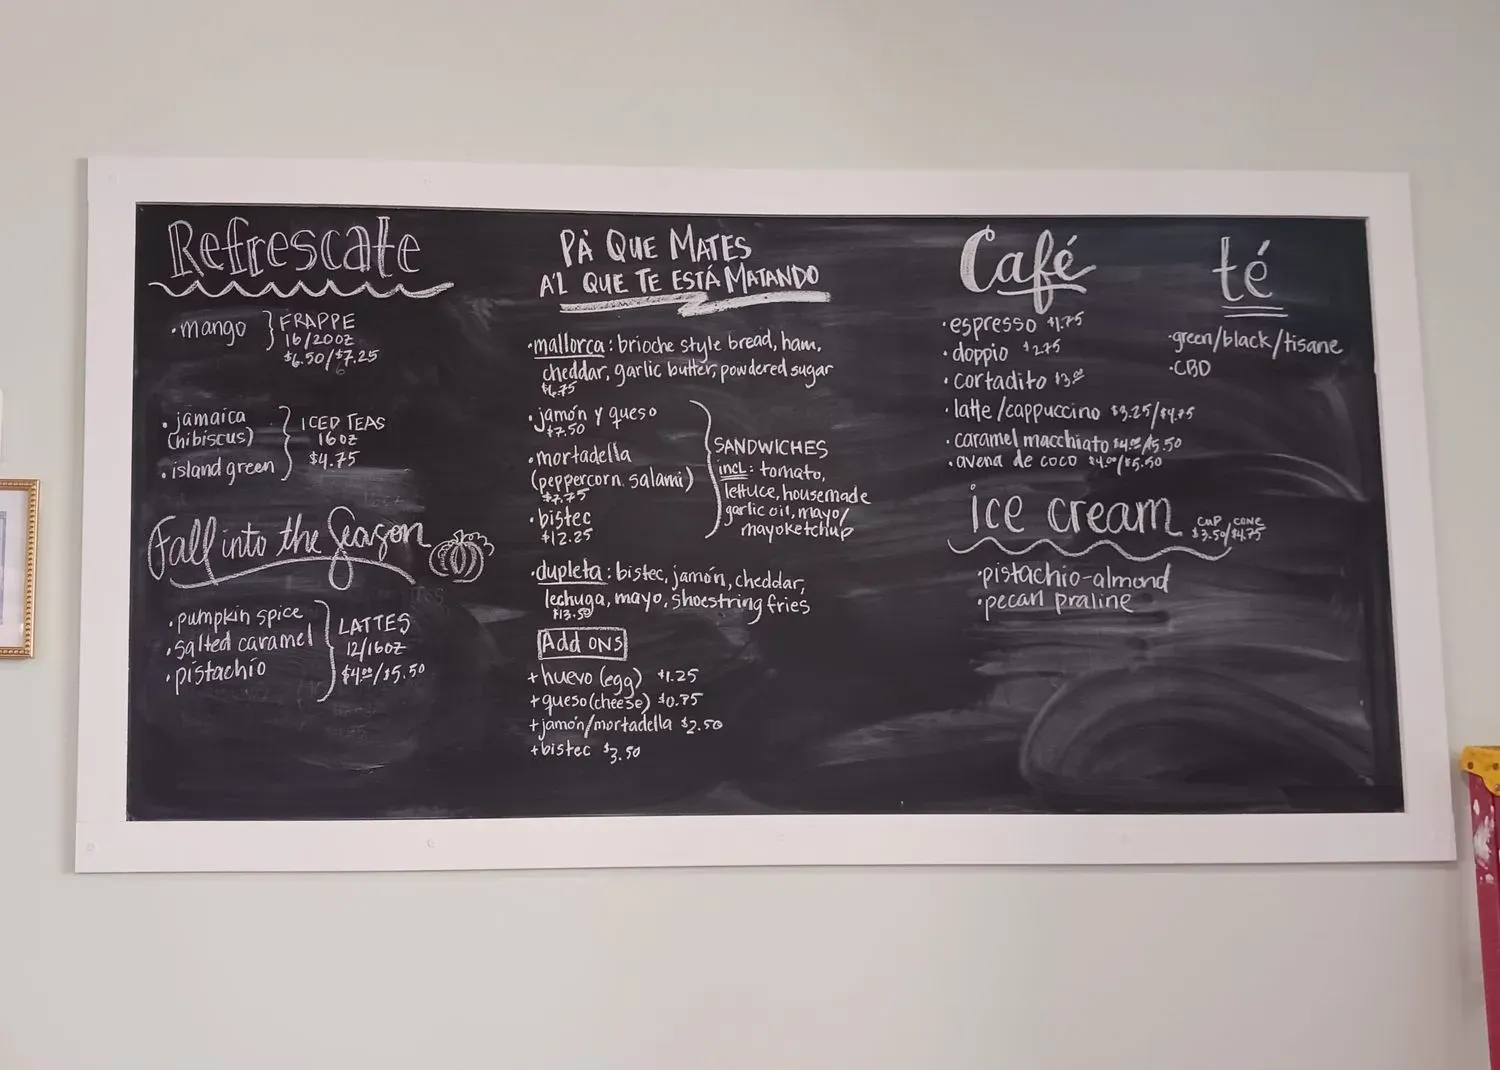 Refrescate
• mango } FRAPPE
16/20oz
$6.50/$7.25
• jamaica
(hibiscus)
• island green
ICED TEAS
16oz
$4.75
Fall into the Season
• pumpkin spice
• salted caramel
• pistachio
LATTES
12/16oz
$4.00/$5.50
PA' QUE MATES
A'L QUE TE ESTÁ MATANDO
• mallorca: brioche style bread, ham,
cheddar, garlic butter, powdered sugar
$6.75
• jamón y queso
$7.50
• mortadella
(peppercorn salami)
$7.75
• bistec
$12.25
SANDWICHES
incl: tomato,
lettuce, housemade
garlic oil, mayo/
mayoketchup
• dupleta: bistec, jamón, cheddar,
lechuga, mayo, shoestring fries
$13.50
Add ons
+ huevo (egg) $1.25
+ queso (cheese) $0.75
+ jamón/mortadella $2.50
+ bistec $3.50
Café
• espresso $1.75
• doppio $2.75
• cortadito $3.00
• latte/cappuccino $3.25/$4.75
• caramel macchiato $4.00/$5.50
• avena de coco $4.00/$5.50
té
• green/black/tisane
• CBD
ice cream
CUP/CONE
$3.50/$4.75
• pistachio-almond
• pecan praline